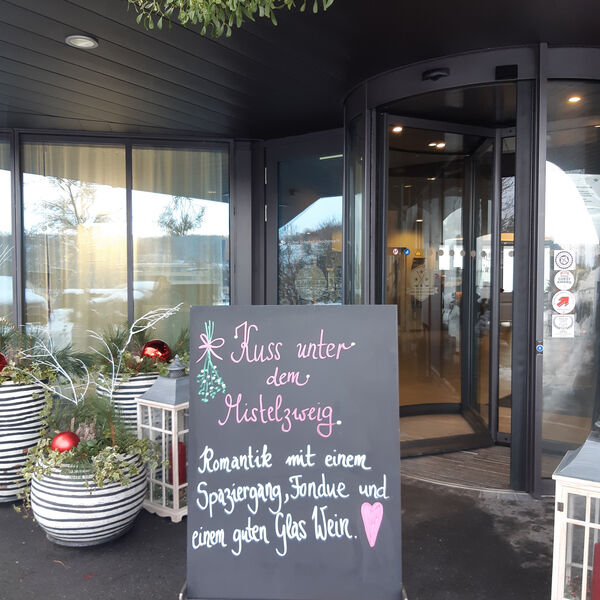 Kuss unter
dem
Mistelzweig.
Romantik mit einem
Spaziergang, Fondue und
einem guten Glas Wein.